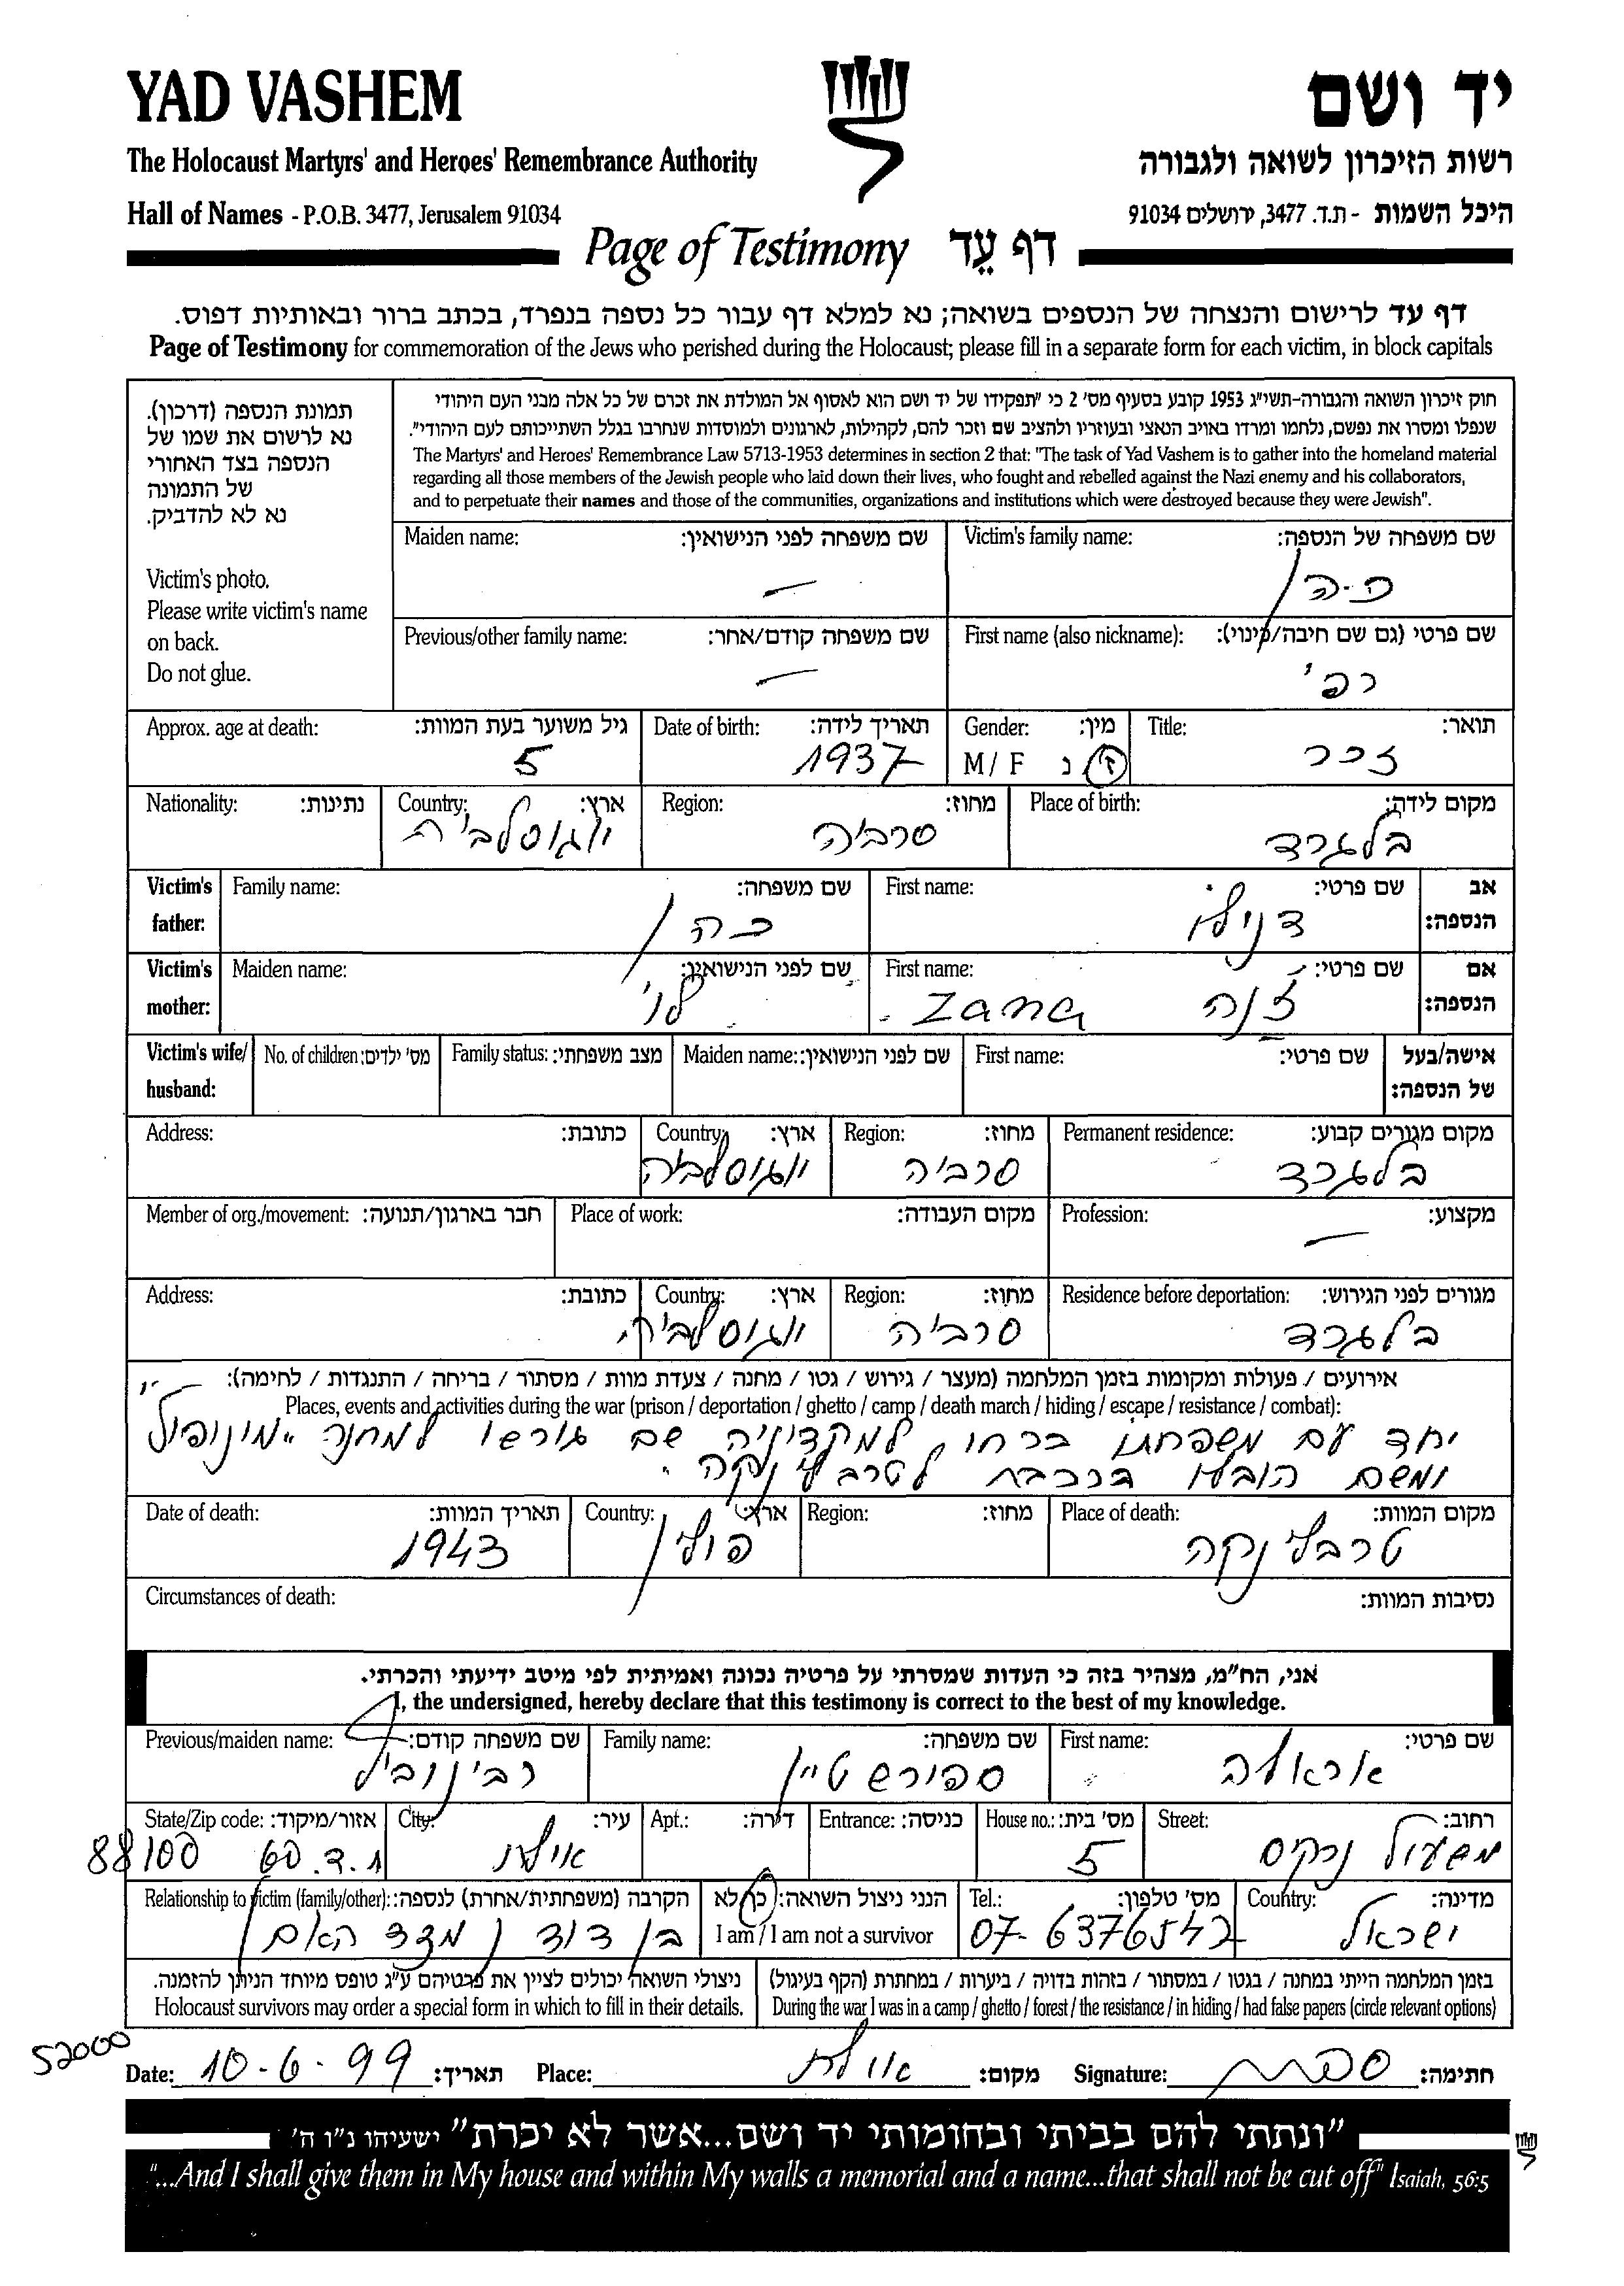 YAD VASHEM
יד ושם
The Holocaust Martyrs' and Heroes' Remembrance Authority
רשות הזיכרון לשואה ולגבורה
Hall of Names - P.O.B. 3477, Jerusalem 91034
היכל השמות - ת.ד. 3477, ירושלים 91034
Page of Testimony דף עֵד
דף עד לרישום והנצחה של הנספים בשואה; נא למלא דף עבור כל נספה בנפרד, בכתב ברור ובאותיות דפוס.
Page of Testimony for commemoration of the Jews who perished during the Holocaust; please fill in a separate form for each victim, in block capitals
תמונת הנספה (דרכון).
נא לרשום את שמו של
הנספה בצד האחורי
של התמונה
נא לא להדביק.
Victim's photo.
Please write victim's name
on back.
Do not glue.
חוק זיכרון השואה והגבורה-תשי"ג 1953 קובע בסעיף מס' 2 כי "תפקידו של יד ושם הוא לאסוף אל המולדת את זכרם של כל אלה מבני העם היהודי
שנפלו ומסרו את נפשם, נלחמו ומרדו באויב הנאצי ובעוזריו ולהציב שם וזכר להם, לקהילות, לארגונים ולמוסדות שנחרבו בגלל השתייכותם לעם היהודי".
The Martyrs' and Heroes' Remembrance Law 5713-1953 determines in section 2 that: "The task of Yad Vashem is to gather into the homeland material
regarding all those members of the Jewish people who laid down their lives, who fought and rebelled against the Nazi enemy and his collaborators,
and to perpetuate their names and those of the communities, organizations and institutions which were destroyed because they were Jewish".
Victim's family name: שם משפחה של הנספה:
כהן
Maiden name: שם משפחה לפני הנישואין:
—
First name (also nickname): שם פרטי (גם שם חיבה/כינוי):
רפי
Previous/other family name: שם משפחה קודם/אחר:
—
Title: תואר:
זכר
Gender: מין:
M / F ז / נ
Date of birth: תאריך לידה:
1937
Approx. age at death: גיל משוער בעת המוות:
5
Place of birth: מקום לידה:
בלגרד
Region: מחוז:
סרביה
Country: ארץ:
יוגוסלביה
Nationality: נתינות:
Victim's father: אב הנספה:
First name: שם פרטי:
דנילו
Family name: שם משפחה:
כהן
Victim's mother: אם הנספה:
First name: שם פרטי:
ז'נה Zana
Maiden name: שם לפני הנישואין:
לוי
Victim's wife/ husband: אישה/בעל של הנספה:
First name: שם פרטי:
Maiden name: שם לפני הנישואין:
Family status: מצב משפחתי:
No. of children: מס' ילדים:
Permanent residence: מקום מגורים קבוע:
בלגרד
Region: מחוז:
סרביה
Country: ארץ:
יוגוסלביה
Address: כתובת:
Profession: מקצוע:
—
Place of work: מקום העבודה:
Member of org./movement: חבר בארגון/תנועה:
Residence before deportation: מגורים לפני הגירוש:
בלגרד
Region: מחוז:
סרביה
Country: ארץ:
יוגוסלביה
Address: כתובת:
אירועים / פעולות ומקומות בזמן המלחמה (מעצר / גירוש / גטו / מחנה / צעדת מוות / מסתור / בריחה / התנגדות / לחימה):
Places, events and activities during the war (prison / deportation / ghetto / camp / death march / hiding / escape / resistance / combat):
יחד עם משפחתו ברחו למקדוניה שם גורשו למחנה "מונופול"
ומשם הובלו ברכבת לטרבלינקה.
Place of death: מקום המוות:
טרבלינקה
Region: מחוז:
Country: ארץ:
פולין
Date of death: תאריך המוות:
1943
Circumstances of death: נסיבות המוות:
אני, הח"מ, מצהיר בזה כי העדות שמסרתי על פרטיה נכונה ואמיתית לפי מיטב ידיעתי והכרתי.
I, the undersigned, hereby declare that this testimony is correct to the best of my knowledge.
First name: שם פרטי:
Family name: שם משפחה:
ספורשטיין
Previous/maiden name: שם משפחה קודם:
רבינוביץ
Street: רחוב:
משעול נרקיס
House no.: מס' בית:
5
Entrance: כניסה:
Apt.: דירה:
City: עיר:
אילת
State/Zip code: אזור/מיקוד:
88100
Country: מדינה:
ישראל
Tel.: מס' טלפון:
07-6376542
הנני ניצול השואה: כן/לא
I am / I am not a survivor
Relationship to victim (family/other): הקרבה (משפחתית/אחרת) לנספה:
בן דוד מצד האם
בזמן המלחמה הייתי במחנה / בגטו / במסתור / בזהות בדויה / ביערות / במחתרת (הקף בעיגול)
During the war I was in a camp / ghetto / forest / the resistance / in hiding / had false papers (circle relevant options)
ניצולי השואה יכולים לציין את פרטיהם ע"ג טופס מיוחד הניתן להזמנה.
Holocaust survivors may order a special form in which to fill in their details.
52000
Date: 10-6-99 תאריך: Place: אילת מקום: Signature: חתימה:
"ונתתי להם בביתי ובחומותי יד ושם...אשר לא יכרת" ישעיהו נ"ו ה'
"...And I shall give them in My house and within My walls a memorial and a name...that shall not be cut off" Isaiah, 56:5